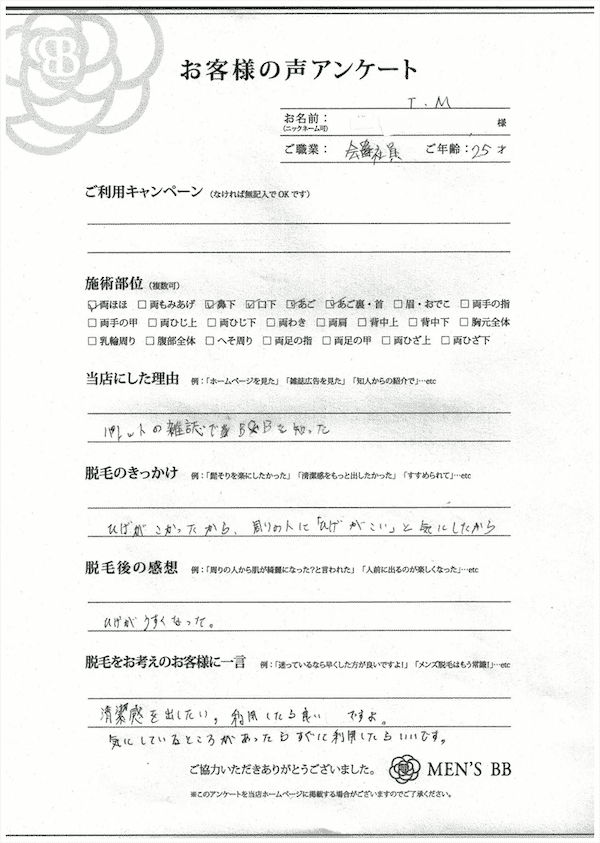 お客様の声アンケート
T.M
お名前：
(ニックネーム可)
様
ご職業： 会社員 ご年齢：25才
ご利用キャンペーン（なければ無記入でOKです）
施術部位（複数可）
☑両ほほ □両もみあげ ☑鼻下 ☑口下 ☑あご ☑あご裏・首 □眉・おでこ □両手の指
□両手の甲 □両ひじ上 □両ひじ下 □両わき □両肩 □背中上 □背中下 □胸元全体
□乳輪周り □腹部全体 □へそ周り □両足の指 □両足の甲 □両ひざ上 □両ひざ下
当店にした理由 例：「ホームページを見た」「雑誌広告を見た」「知人からの紹介で」…etc
パレットの雑誌で BBを知った
脱毛のきっかけ 例：「髭そりを楽にしたかった」「清潔感をもっと出したかった」「すすめられて」…etc
ひげがこかったから、周りの人に「ひげがこい」と気にしたから
脱毛後の感想 例：「周りの人から肌が綺麗になった？と言われた」「人前に出るのが楽しくなった」…etc
ひげがうすくなった。
脱毛をお考えのお客様に一言 例：「迷っているなら早くした方が良いですよ！」「メンズ脱毛はもう常識！」…etc
清潔感を出したい，利用したら良い ですよ。
気にしているところがあったらすぐに利用したらいいです。
ご協力いただきありがとうございました。 MEN'S BB
※このアンケートを当店ホームページに掲載する場合がございますのでご了承ください。